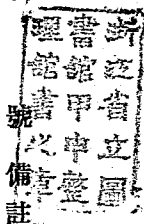 浙江省立圖
書館甲申整
理館書之章
號備註